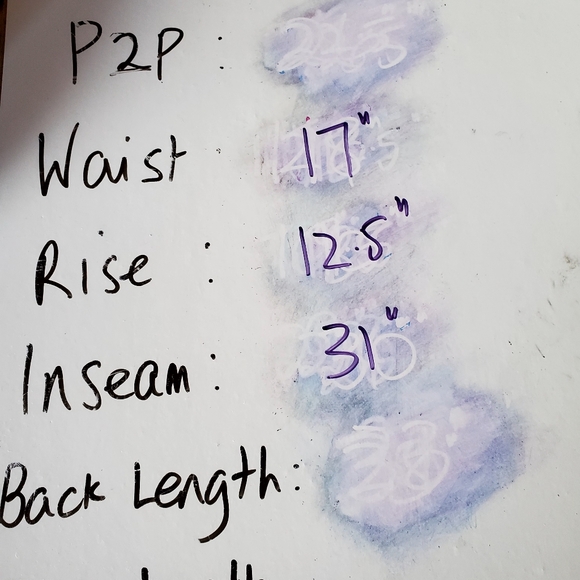 P2P :
Waist : 17"
Rise : 12.5"
Inseam : 31"
Back Length :